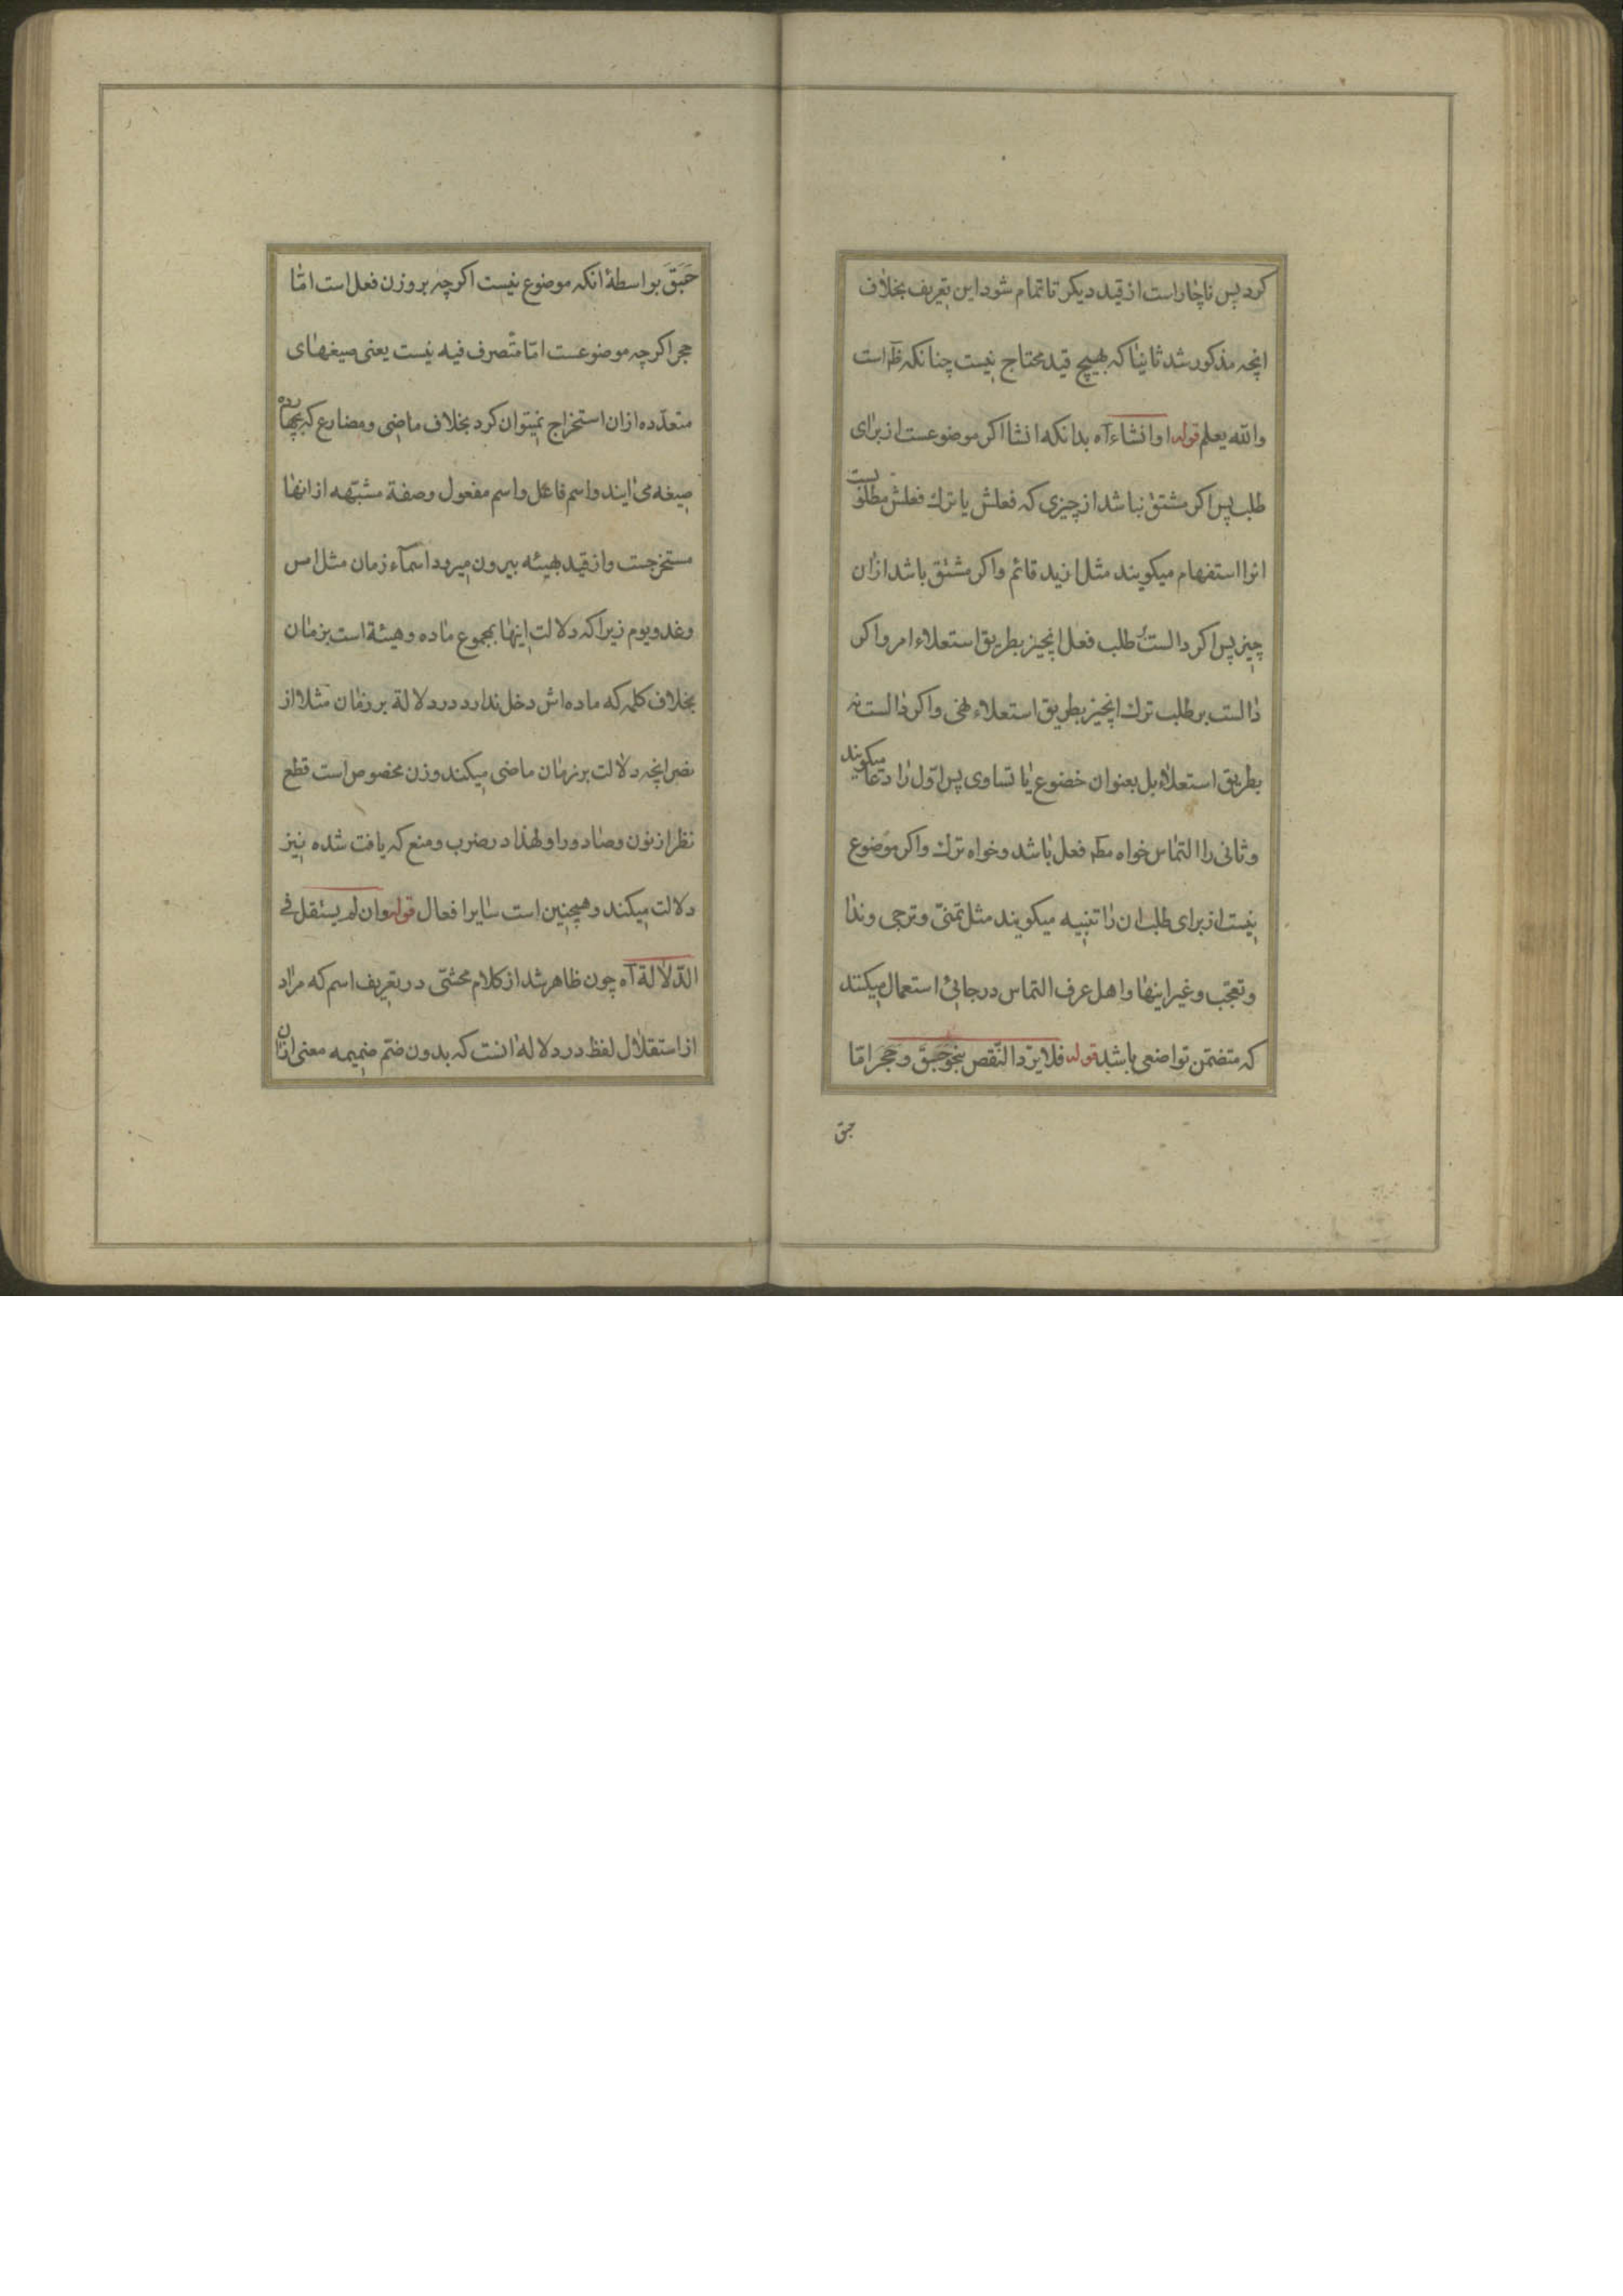 کرد پس ناچار است از قید دیکر تا تمام شود این تعریف بخلاف
انچه مذکور شد ثانیا که بهیچ قید محتاج نیست چنانکه ظ است
والله یعلم قوله او انشاء آه بدانکه انشا اکر موضوعست از برای
طلب پس اکر مشتق نباشد از چیزی که فعلش یا ترك فعلش مطلوبست
انرا استفهام میکویند مثل ازید قائم واکر مشتق باشد ازان
چیز پس اکر دالست بر طلب فعل انچیز بطریق استعلاء امر واکر
دالست بر طلب ترك انچیز بطریق استعلاء نهی واکر دالست نه
بطریق استعلاء بل بعنوان خضوع یا تساوی پس اوّل را دعا میکویند
وثانی را التماس خواه مط فعل باشد وخواه ترك واکر موضوع
نیست از برای طلب ان را تنبیه میکویند مثل تمنّی وترجی وندا
وتعجّب وغیر اینها واهل عرف التماس در جائی استعمال میکنند
که متضمّن تواضعی باشد قوله فلا یرد النّقص بنحو حَبَقَ وحَجَر امّا
حبق
حَبَقَ بواسطهٔ انکه موضوع نیست اکرچه بر وزن فعل است امّا
حجر اکرچه موضوعست امّا متصرف فیه نیست یعنی صیغهای
متعدّده ازان استخراج نمیتوان کرد بخلاف ماضی ومضارع که بچهارده
صیغه می ایند واسم فاعل واسم مفعول وصفة مشبّهه از انها
مستخرجست واز قید بهیئه بیرون میرود اسمآء زمان مثل امس
وغد ویوم زیرا که دلالت اینها بمجموع ماده وهیئة است بزمان
بخلاف کلمه که ماده اش دخل ندارد در دلالة بر زمان مثلا از
نصر انچه دلالت بر زمان ماضی میکند وزن مخصوص است قطع
نظر از نون وصاد ورا ولهذا در ضرب ومنع که یافت شده نیز
دلالت میکند وهمچنین است سایر افعال قوله وان لم یستقل فی
الدّلالة آه چون ظاهر شد از کلام محشّی در تعریف اسم که مراد
از استقلال لفظ در دلاله انست که بدون ضمّ ضمیمه معنی ازان